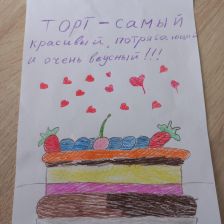 ТОРТ - САМЫЙ
красивый, потрясающий
и очень вкусный!!!